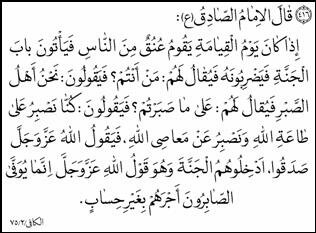 ﴿٤١٦﴾ قَالَ الْإِمَامُ الصَّادِقُ (ع):
إِذَا كَانَ يَوْمُ الْقِيَامَةِ يَقُومُ عُنُقٌ مِنَ النَّاسِ فَيَأْتُونَ بَابَ
الْجَنَّةِ فَيَضْرِبُونَهُ فَيُقَالُ لَهُمْ: مَنْ أَنْتُمْ؟ فَيَقُولُونَ: نَحْنُ أَهْلُ
الصَّبْرِ فَيُقَالُ لَهُمْ: عَلَى مَا صَبَرْتُمْ؟ فَيَقُولُونَ: كُنَّا نَصْبِرُ عَلَى
طَاعَةِ اللهِ وَنَصْبِرُ عَنْ مَعَاصِي اللهِ، فَيَقُولُ اللهُ عَزَّ وَجَلَّ
صَدَقُوا، اَدْخِلُوهُمُ الْجَنَّةَ وَهُوَ قَوْلُ اللهِ عَزَّ وَجَلَّ إِنَّمَا يُوَفَّى
الصَّابِرُونَ أَجْرَهُمْ بِغَيْرِ حِسَابٍ.
الكافي/٢/٧٥